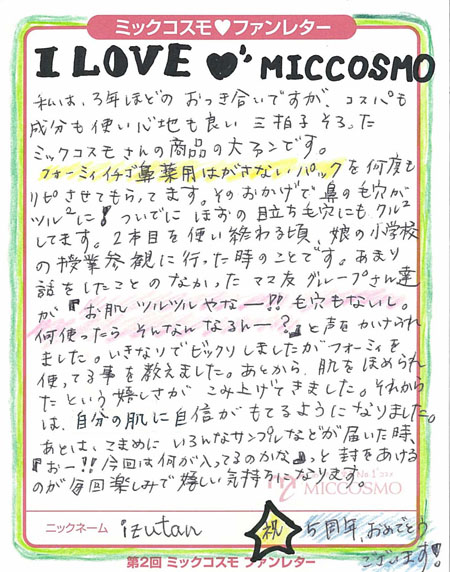 ミックコスモ♥ファンレター
I LOVE ♥' MICCOSMO
私は、3年ほどの おっき合いですが、コスパも
成分も使い心地も良い 三拍子 そろった
ミックコスモさんの商品の大ファンです。
フォーミィ イチゴ鼻薬用はがさないパックを何度も
リピさせてもらってます。そのおかげで鼻の毛穴が
ツルツルに! ついでに ほおの目立ち毛穴にもクルクル
してます。2本目を使い終わる頃、娘の小学校
の授業参観に行った時のことです。あまり
話をしたことのなかったママ友グループさん達
が『お肌 ツルツルやなー!! 毛穴もないし。
何使ったら そんなんなるん―?』と声をかけられ
ました。いきなりでビックリしましたがフォーミィを
使ってる事を教えました。あとから、肌をほめられ
たという嬉しさが こみ上げてきました。それから
は、自分の肌に自信が もてるようになりました。
あとは、こまめに いろんなサンプルなどが届いた時、
『おー!! 今回は何が入ってるのかな』っと 封をあける
のが毎回楽しみで嬉しい気持ちになります。
MICCOSMO
ニックネーム izutan
祝 5周年、おめでとう
ございます!
第2回 ミックコスモ ファンレター